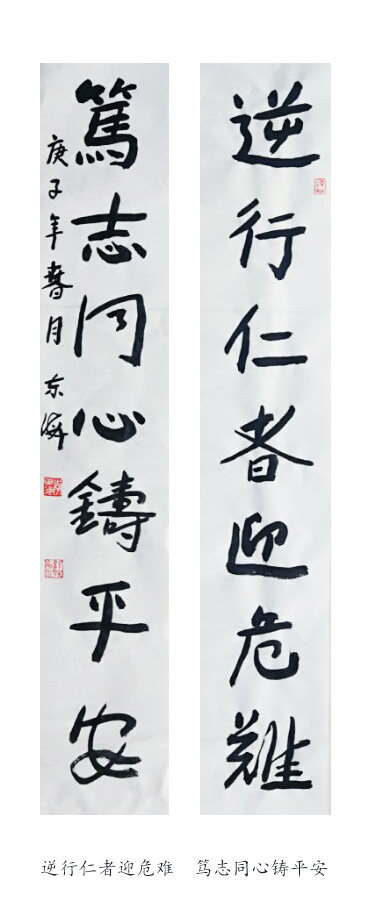 逆行仁者迎危難
篤志同心鑄平安
庚子年春月 东海
逆行仁者迎危难 笃志同心铸平安